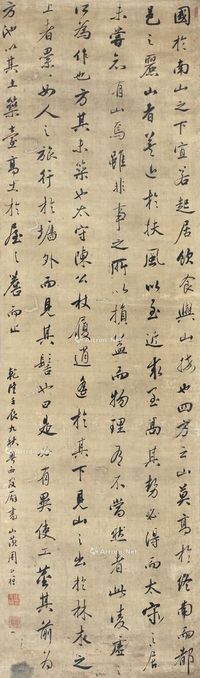 國於南山之下宜若起居飲食與山接也四方之山莫高於終南而都
邑之麗山者莫近於扶風以至近求至高其勢必得而太守之居
未嘗知有山焉雖非事之所以損益而物理有不當然者此凌虛之
所為作也方其未築也太守陳公杖履逍遙於其下見山之出於林木之
上者纍纍如人之旅行於墻外而見其髻也曰是必有異使工鑿其前為
方池以其土築臺高出於屋之簷而止
乾隆壬辰九秋 書 山茨周